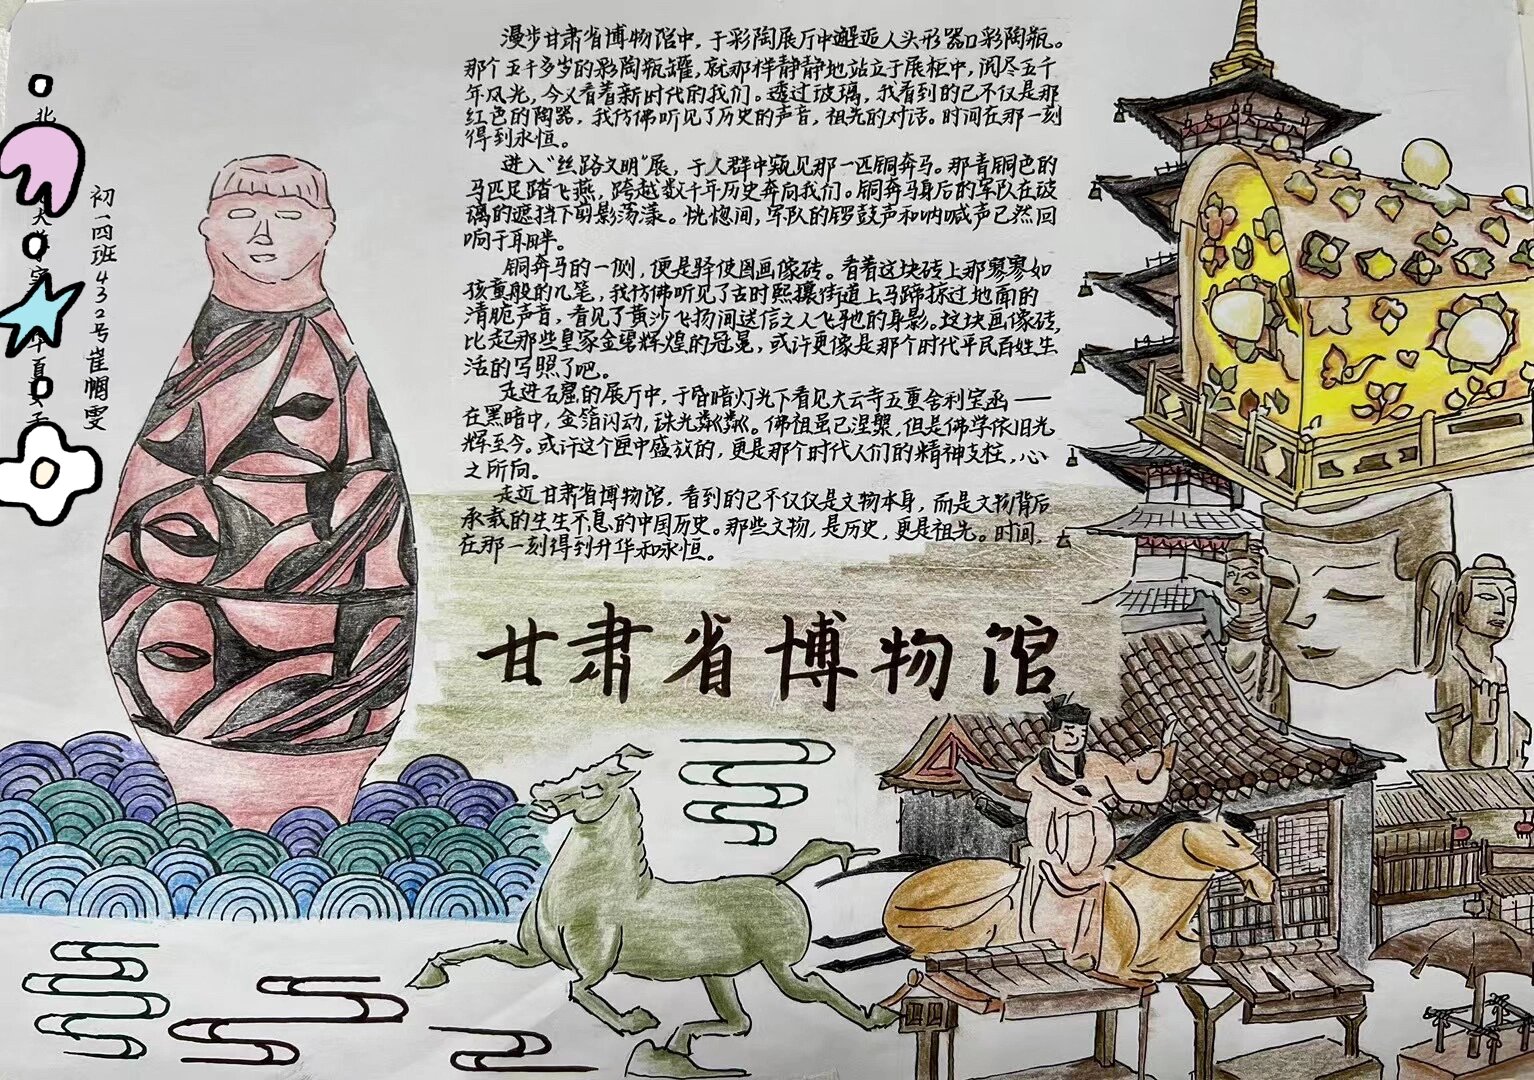 漫步甘肃省博物馆中，于彩陶展厅中邂逅人头形器口彩陶瓶。
那个五千多岁的彩陶瓶罐，就那样静静地站立于展柜中，阅尽五千
年风光，今又看着新时代的我们。透过玻璃，我看到的已不仅是那
红色的陶器，我仿佛听见了历史的声音，祖先的对话。时间在那一刻
得到永恒。
进入“丝路文明”展，于人群中窥见那一匹铜奔马。那青铜色的
马匹足踏飞燕，跨越数千年历史奔向我们。铜奔马身后的军队在玻
璃的遮挡下剪影荡漾。恍惚间，军队的锣鼓声和呐喊声已然回
响于耳畔。
铜奔马的一侧，便是驿使图画像砖。看着这块砖上那寥寥如
孩童般的几笔，我仿佛听见了古时熙攘街道上马蹄掠过地面的
清脆声音，看见了黄沙飞扬间送信之人飞驰的身影。这块画像砖，
比起那些皇家金碧辉煌的冠冕，或许更像是那个时代平民百姓生
活的写照了吧。
走进石窟的展厅中，于昏暗灯光下看见大云寺五重舍利宝函——
在黑暗中，金箔闪动，珠光粼粼。佛祖虽已涅槃，但是佛学依旧光
辉至今。或许这个匣中盛放的，更是那个时代人们的精神支柱，心
之所向。
走近甘肃省博物馆，看到的已不仅仅是文物本身，而是文物背后
承载的生生不息的中国历史。那些文物，是历史，更是祖先。时间，
在那一刻得到升华和永恒。
甘肃省博物馆
初一四班432号崔帼雯
北
大